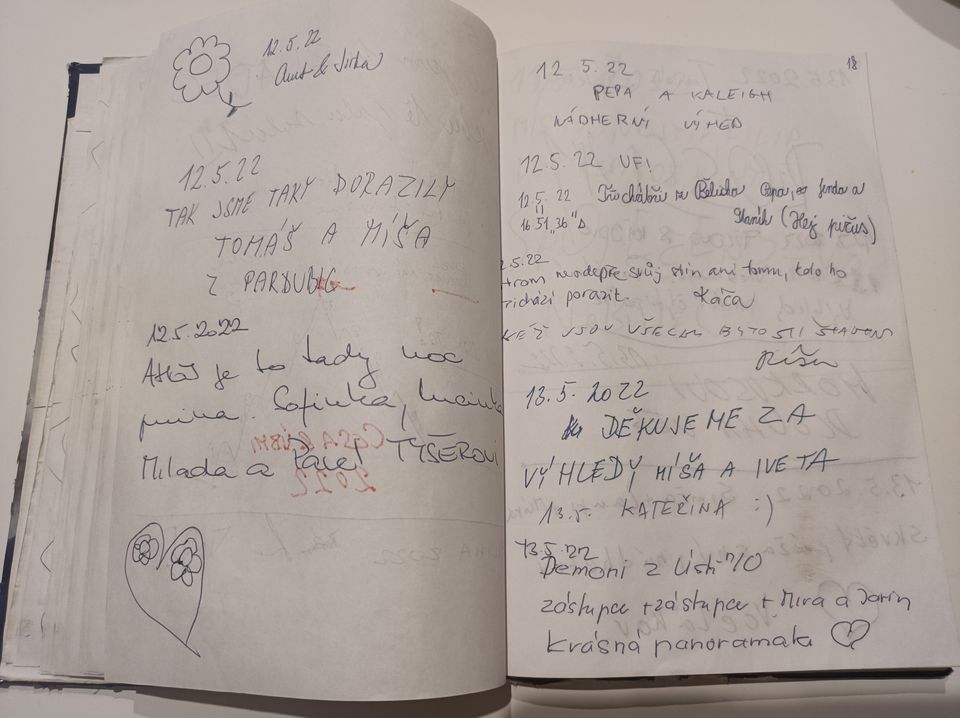 12.5.22
& Jirka
12.5.22
TAK JSME TAKY DORAZILY
TOMÁŠ A MÍŠA
Z PARDUBIC
12.5.2022
je to tady moc
prima. Sofinka, Lucinka
Milada a Karel TYŠEROVI
18
12 5.22
PEPA A KALEIGH
NÁDHERNÍ VÝHED
12.5.22 UF!
12.5.22 Tři cháloři ze Pepa, Jenda a
16.51,,36" Staník (Hej pičus)
2.5.22
trom neodepře svůj stín ani tomu, kdo ho
řichází porazit. Káča
KÉŽ JSOU VŠECHNY BYTOSTI ŠŤASTNY
13.5.2022
DĚKUJEME ZA
VÝHLEDY MÍŠA A IVETA
13.5. KATEŘINA :)
13.5.22
Demoni z Ústí n/O
zástupce + zástupce + Mira a Jarin
Krásná panoramata